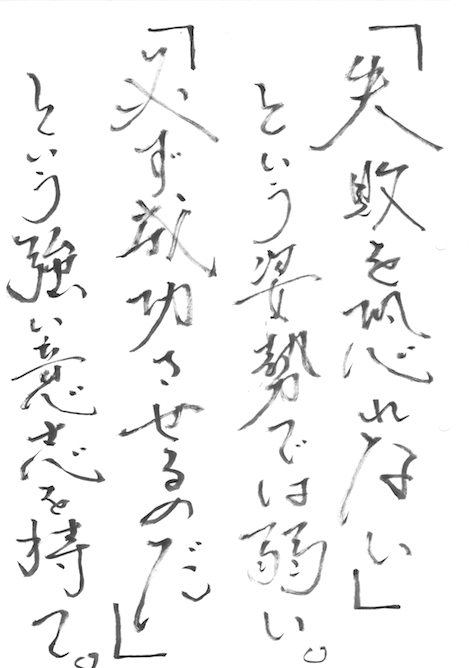 「失敗を恐れない」
という姿勢では弱い。
「必ず成功させるのだ」
という強い意志を持て。